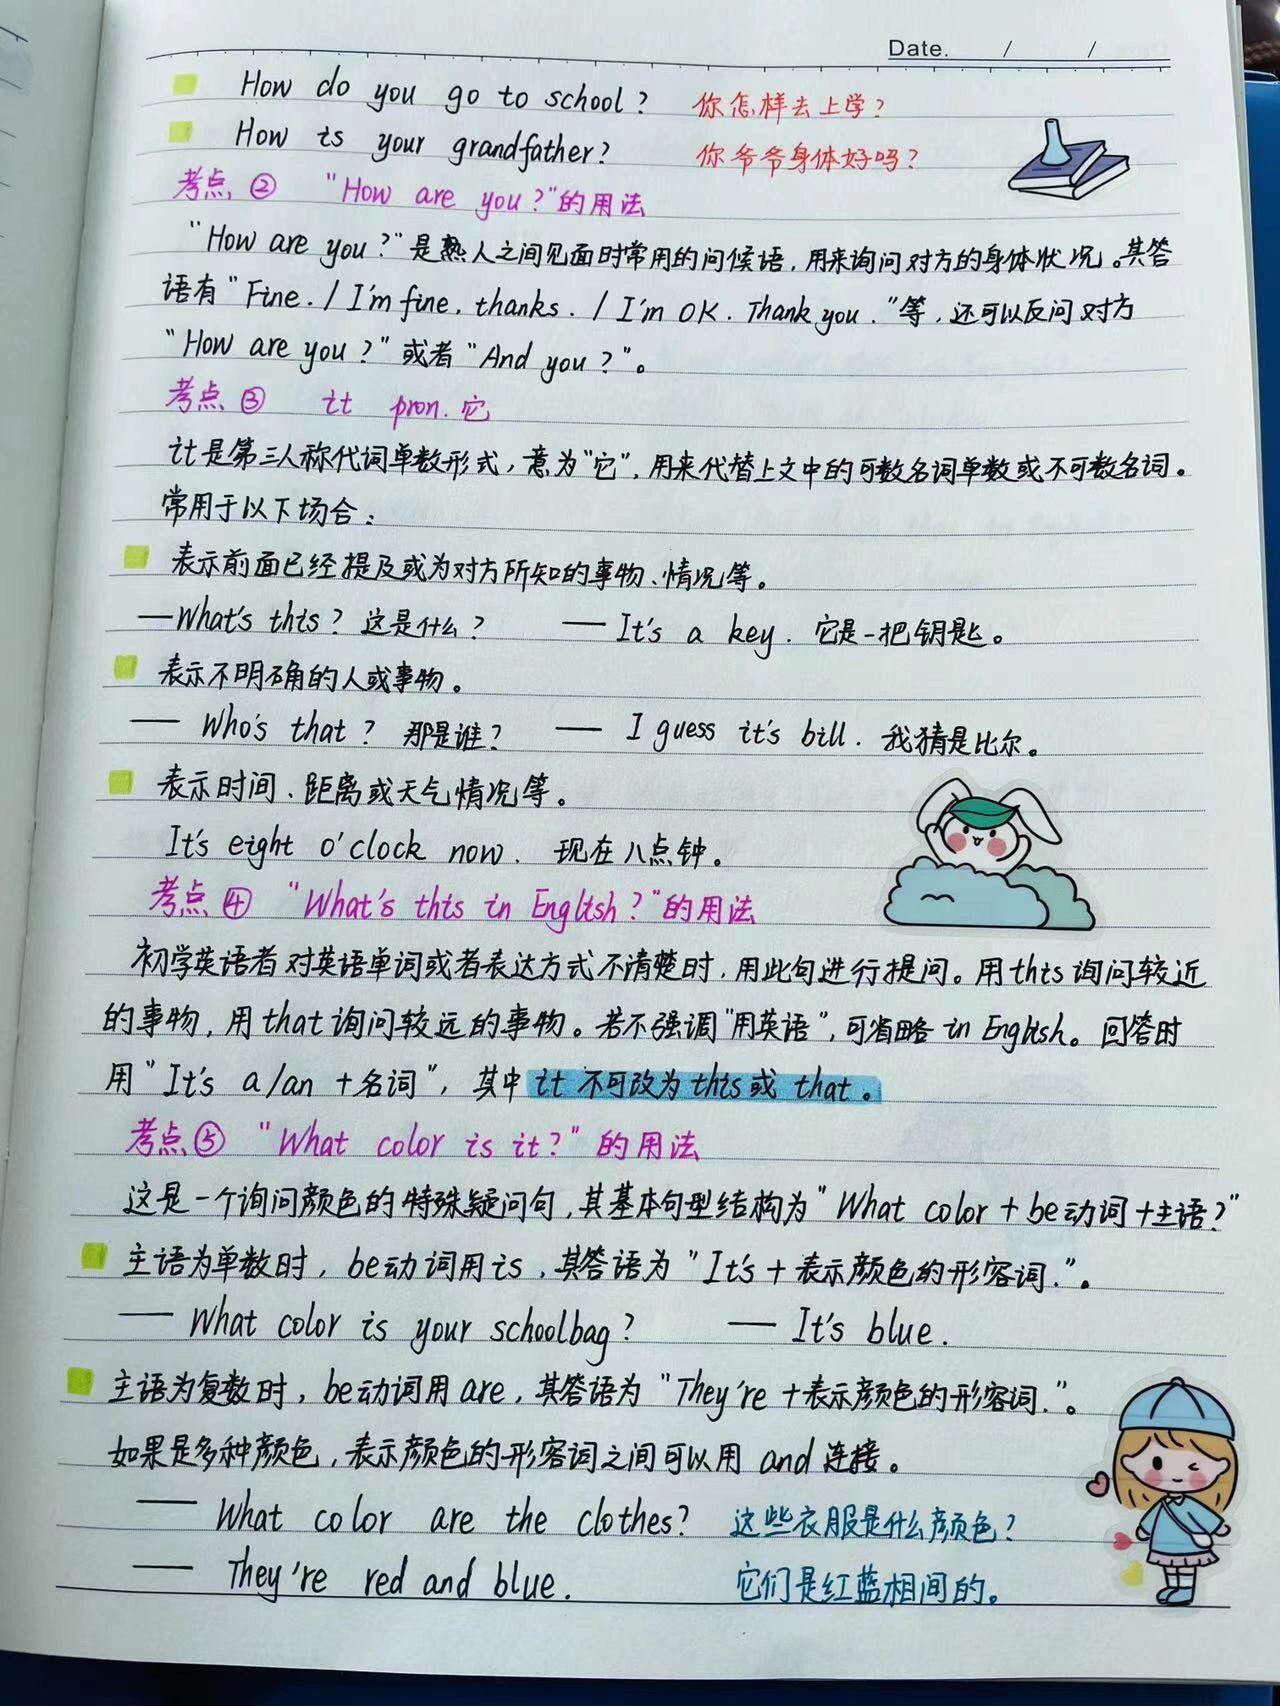 Date. / /
How do you go to school? 你怎样去上学?
How is your grandfather? 你爷爷身体好吗?
考点② "How are you?"的用法
"How are you?"是熟人之间见面时常用的问候语,用来询问对方的身体状况。其答
语有"Fine./I'm fine, thanks./I'm OK. Thank you."等,还可以反问对方
"How are you?"或者"And you?"。
考点③ it pron.它
it是第三人称代词单数形式,意为"它",用来代替上文中的可数名词单数或不可数名词。
常用于以下场合:
表示前面已经提及或为对方所知的事物、情况等。
—What's this? 这是什么? —It's a key. 它是一把钥匙。
表示不明确的人或事物。
—Who's that? 那是谁? —I guess it's bill. 我猜是比尔。
表示时间、距离或天气情况等。
It's eight o'clock now. 现在八点钟。
考点④ "What's this in English?"的用法
初学英语者对英语单词或者表达方式不清楚时,用此句进行提问。用this询问较近
的事物,用that询问较远的事物。若不强调"用英语",可省略in English。回答时
用"It's a/an+名词",其中it不可改为this或that。
考点⑤ "What color is it?"的用法
这是一个询问颜色的特殊疑问句,其基本句型结构为"What color+be动词+主语?"
主语为单数时,be动词用is,其答语为"It's+表示颜色的形容词."。
—What color is your schoolbag? —It's blue.
主语为复数时,be动词用are,其答语为"They're+表示颜色的形容词."。
如果是多种颜色,表示颜色的形容词之间可以用and连接。
—What color are the clothes? 这些衣服是什么颜色?
—They're red and blue. 它们是红蓝相间的。